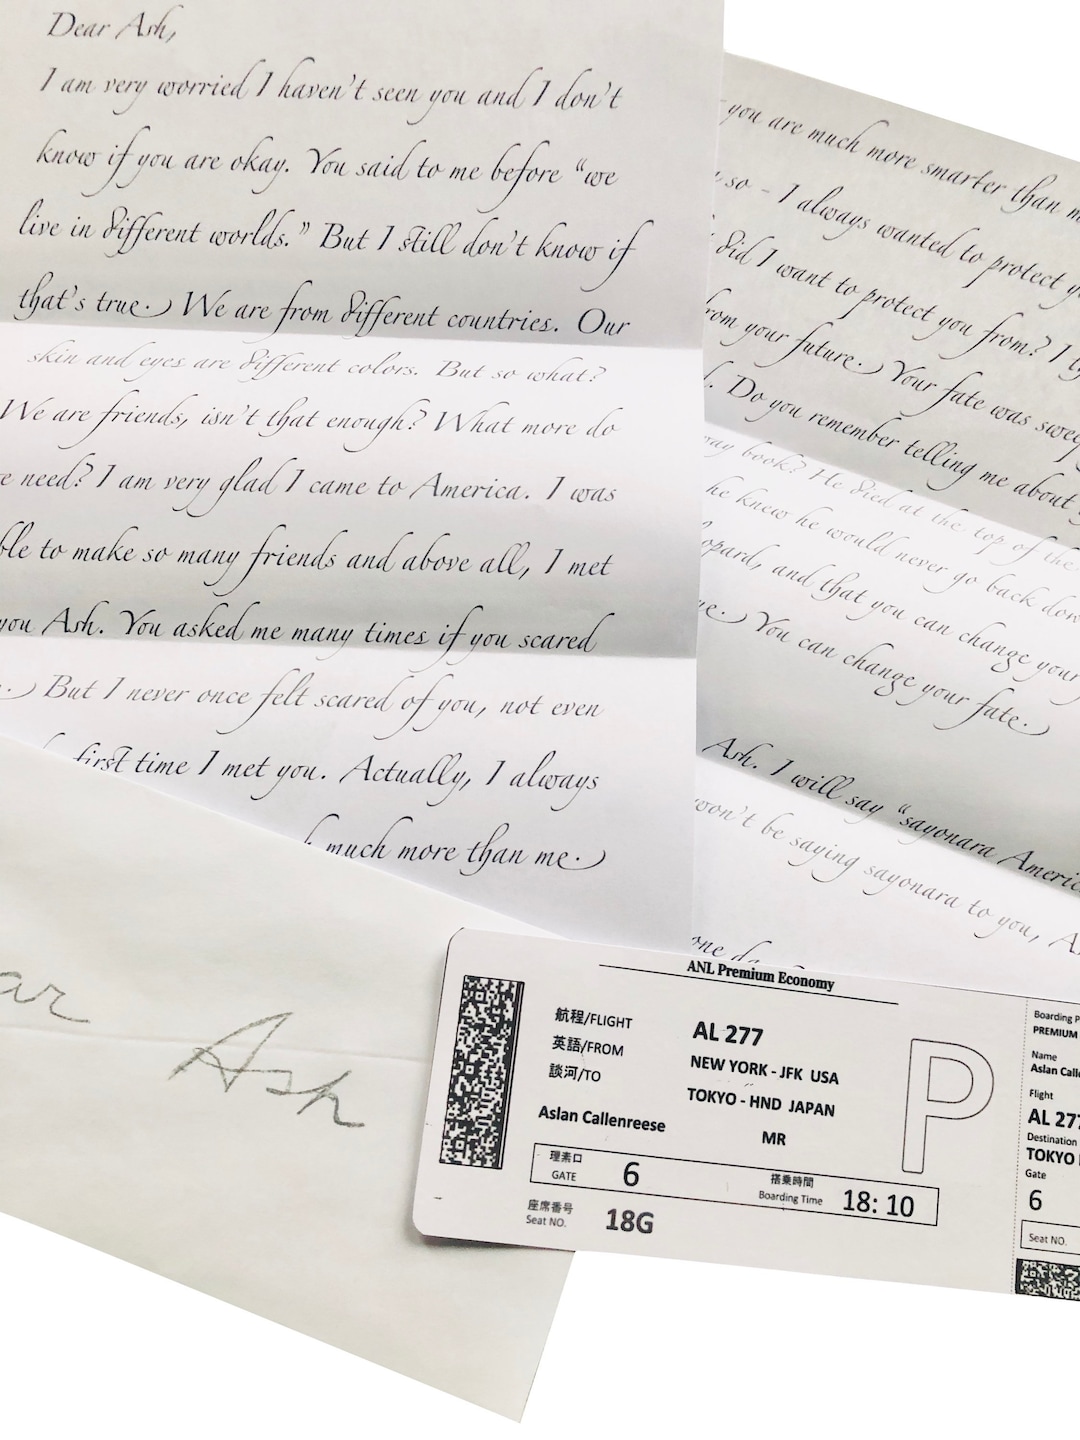 Dear Ash,
I am very worried I haven't seen you and I don't
know if you are okay. You said to me before “we
live in different worlds.” But I still don't know if
that's true. We are from different countries. Our
skin and eyes are different colors. But so what?
We are friends, isn't that enough? What more do
need? I am very glad I came to America. I was
to make so many friends and above all, I met
you Ash. You asked me many times if you scared
But I never once felt scared of you, not even
first time I met you. Actually, I always
much more than me.
you are much more smarter than
so - I always wanted to protect
did I want to protect you from? I
your future. Your fate was
Do you remember telling me about
book? He died at the top of the
he knew he would never go back
and that you can change your
You can change your fate.
Ash. I will say “sayonara
won't be saying sayonara to you,
Ash
ANL Premium Economy
航程/FLIGHT AL 277
英語/FROM NEW YORK - JFK USA
談河/TO TOKYO - HND JAPAN
Aslan Callenreese MR
理素口
GATE 6
搭乗時間
Boarding Time 18: 10
座席番号
Seat NO. 18G
P
Boarding P
PREMIUM
Name
Aslan
Flight
AL
Destination
TOKYO
Gate
6
Seat NO.